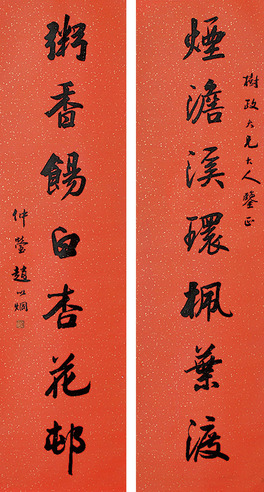 樹政大兄大人鑒正
煙澹溪環楓葉渡
粥香餳白杏花邨
仲瑩趙世烱